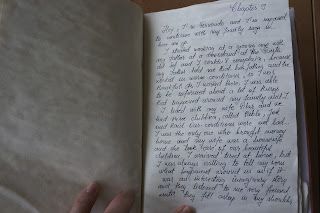 Chapter I
Hey, I'm Fernando and I'm supposed
to continue with my family saga so
here we go.
I started working at a young age with
my father at a
old but and I couldn't complain, because
my father told me that his father and he
worked in worse conditions, so I was
thankful for I worked there. I was able
to be informed about a lot of things
that happened around my family and I.
I lived with my wife and we
had three children, called Pablo, José
and Raúl. Our conditions were not bad.
I was the only one who brought money
home and my wife was a housewife
and she took care of our beautiful
children. I arrived tired at home, but
I was always willing to tell my sons
what happened around us as if it
was an interesting imaginary story
and they listened to me very focused
until they fell asleep in my